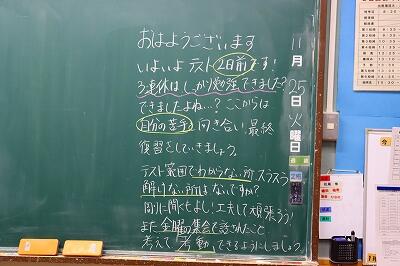 おはようございます
いよいよ テスト 2日前 です!
3連休はしっかり勉強できました?
できましたよね…? ここからは
自分の苦手と向き合い、最終
復習をしていきましょう。
テスト範囲でわからない所、スラスラ
解けない所はないですか?
周りに聞くもよし!工夫して頑張ろう!
また金曜の集会で話されたこと
考えて行動できるようにしましょう。
11月25日火曜日